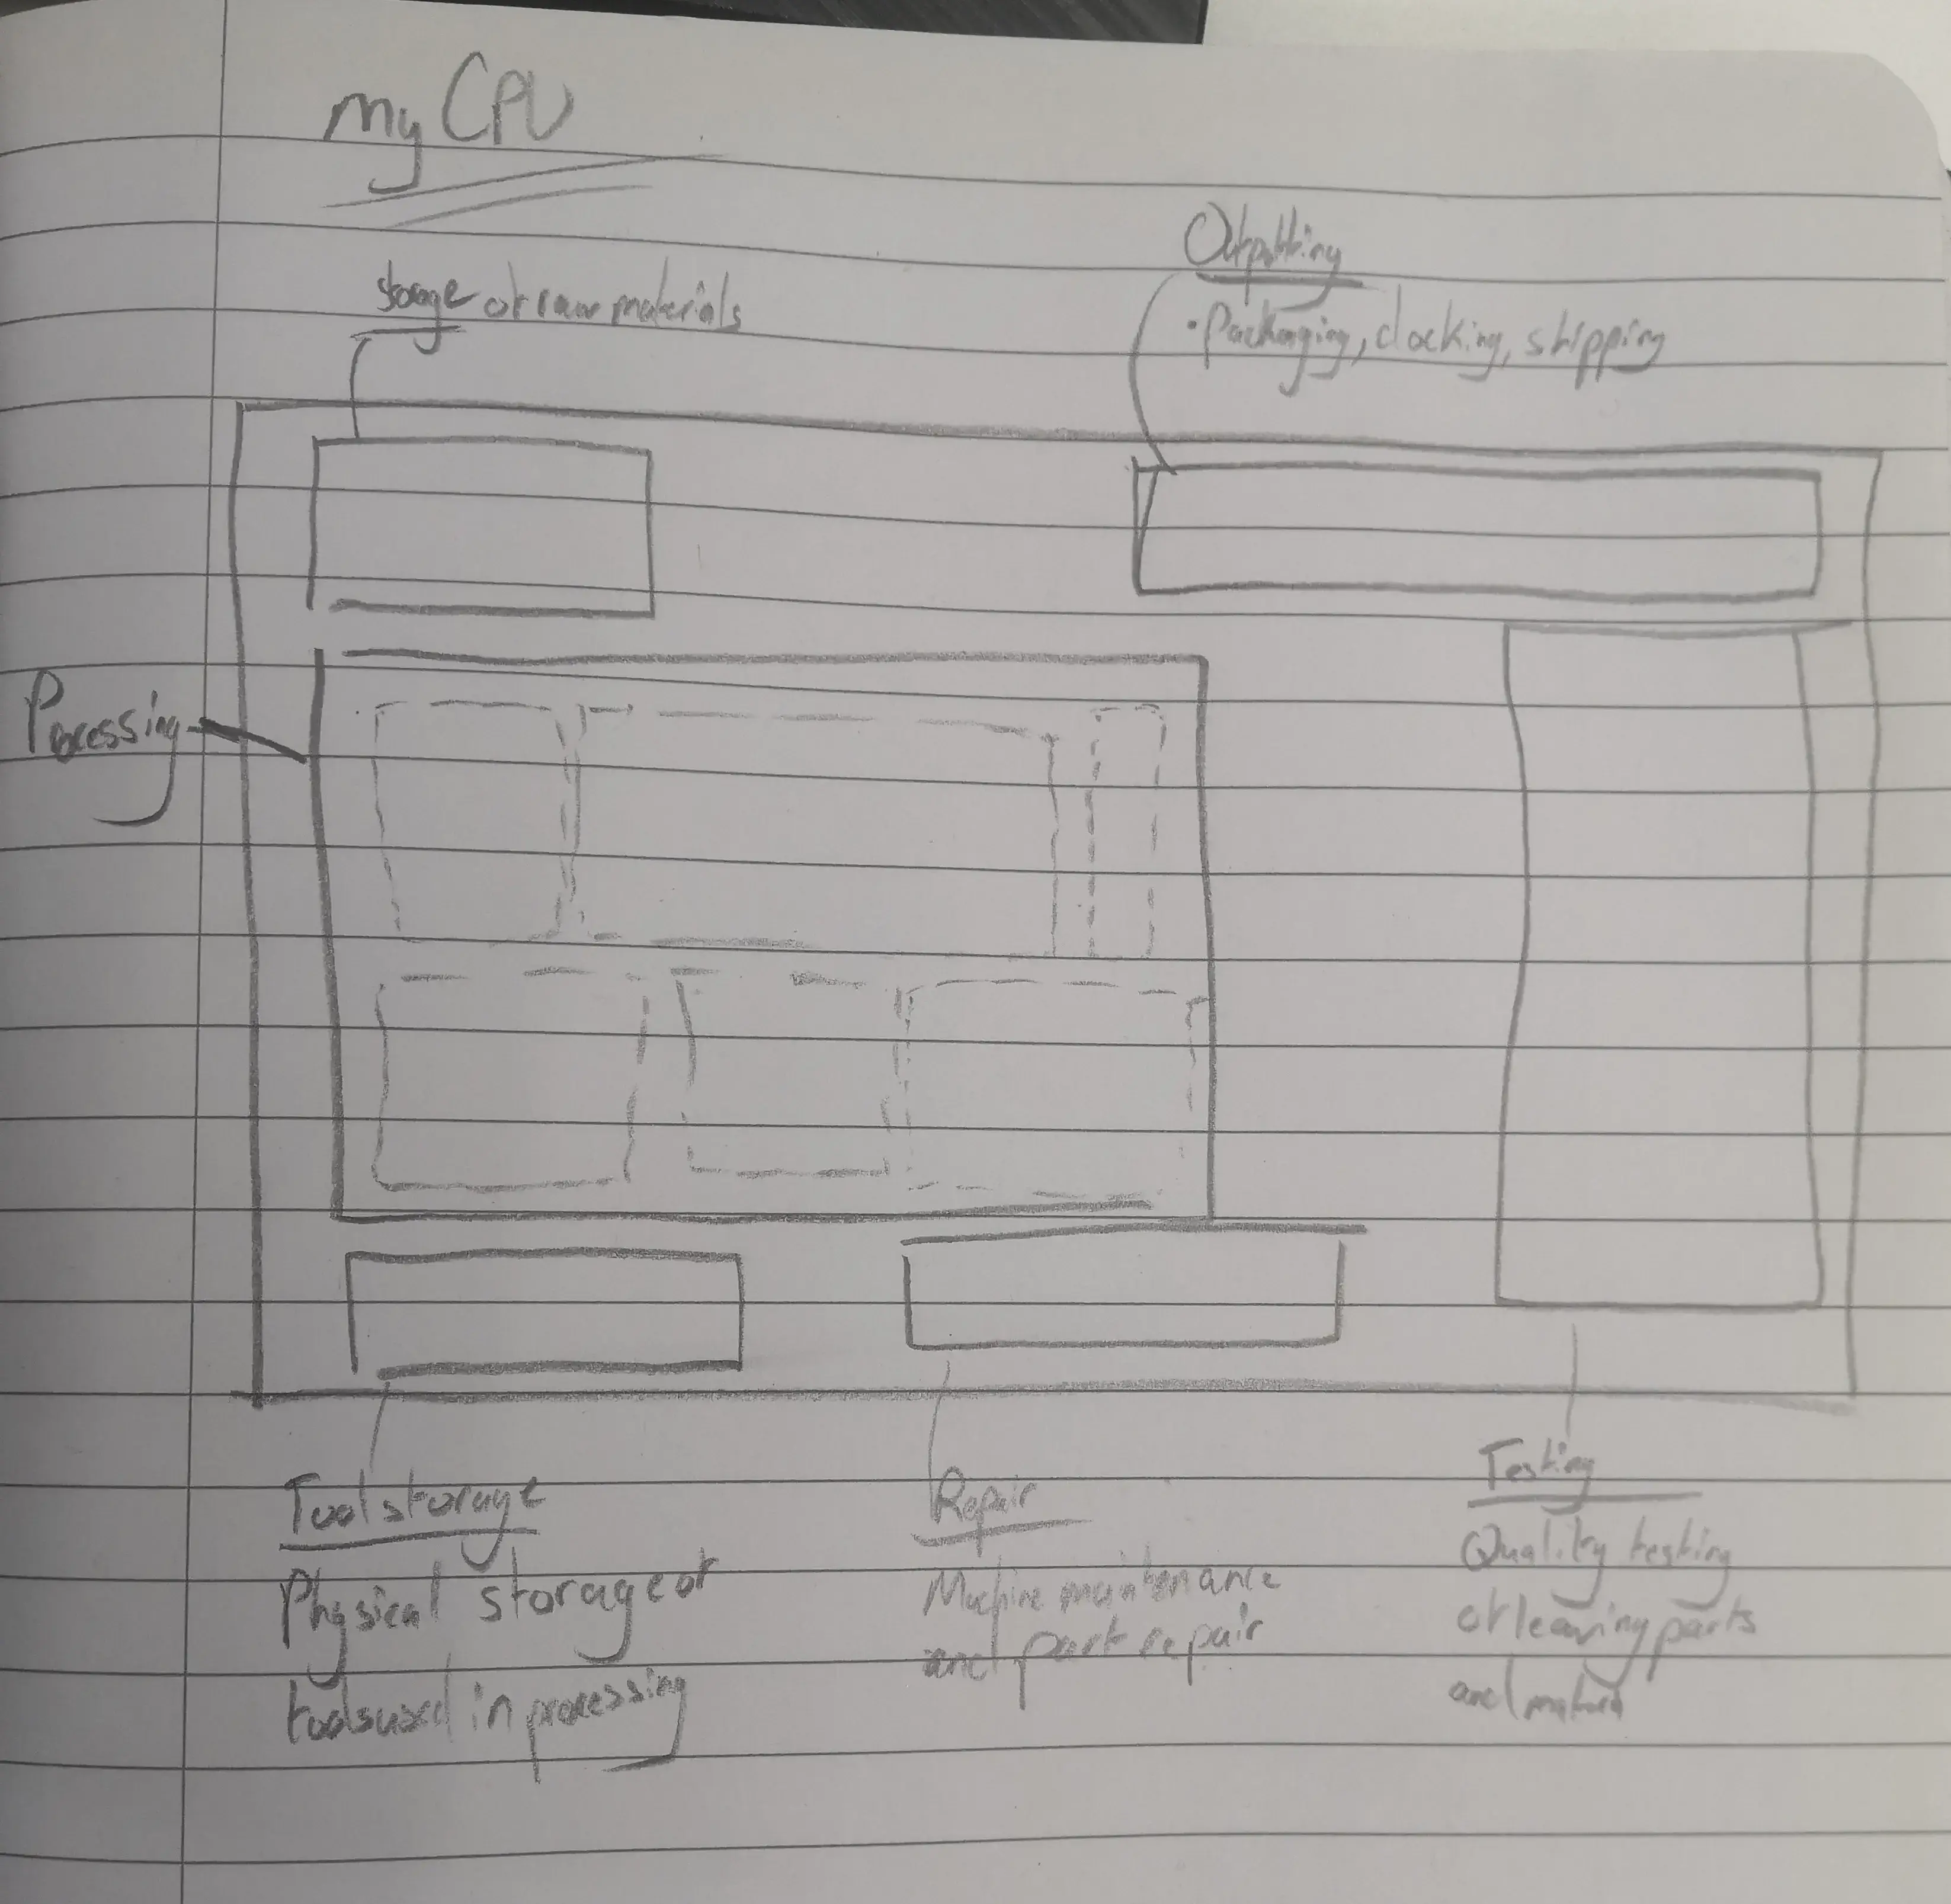 my CPU
Outputting
storage of raw materials
• Packaging, docking, shipping
Processing
Tool storage
Physical storage of
tools used in processing
Repair
Machine maintenance
and part repair
Testing
Quality testing
of leaving parts
and